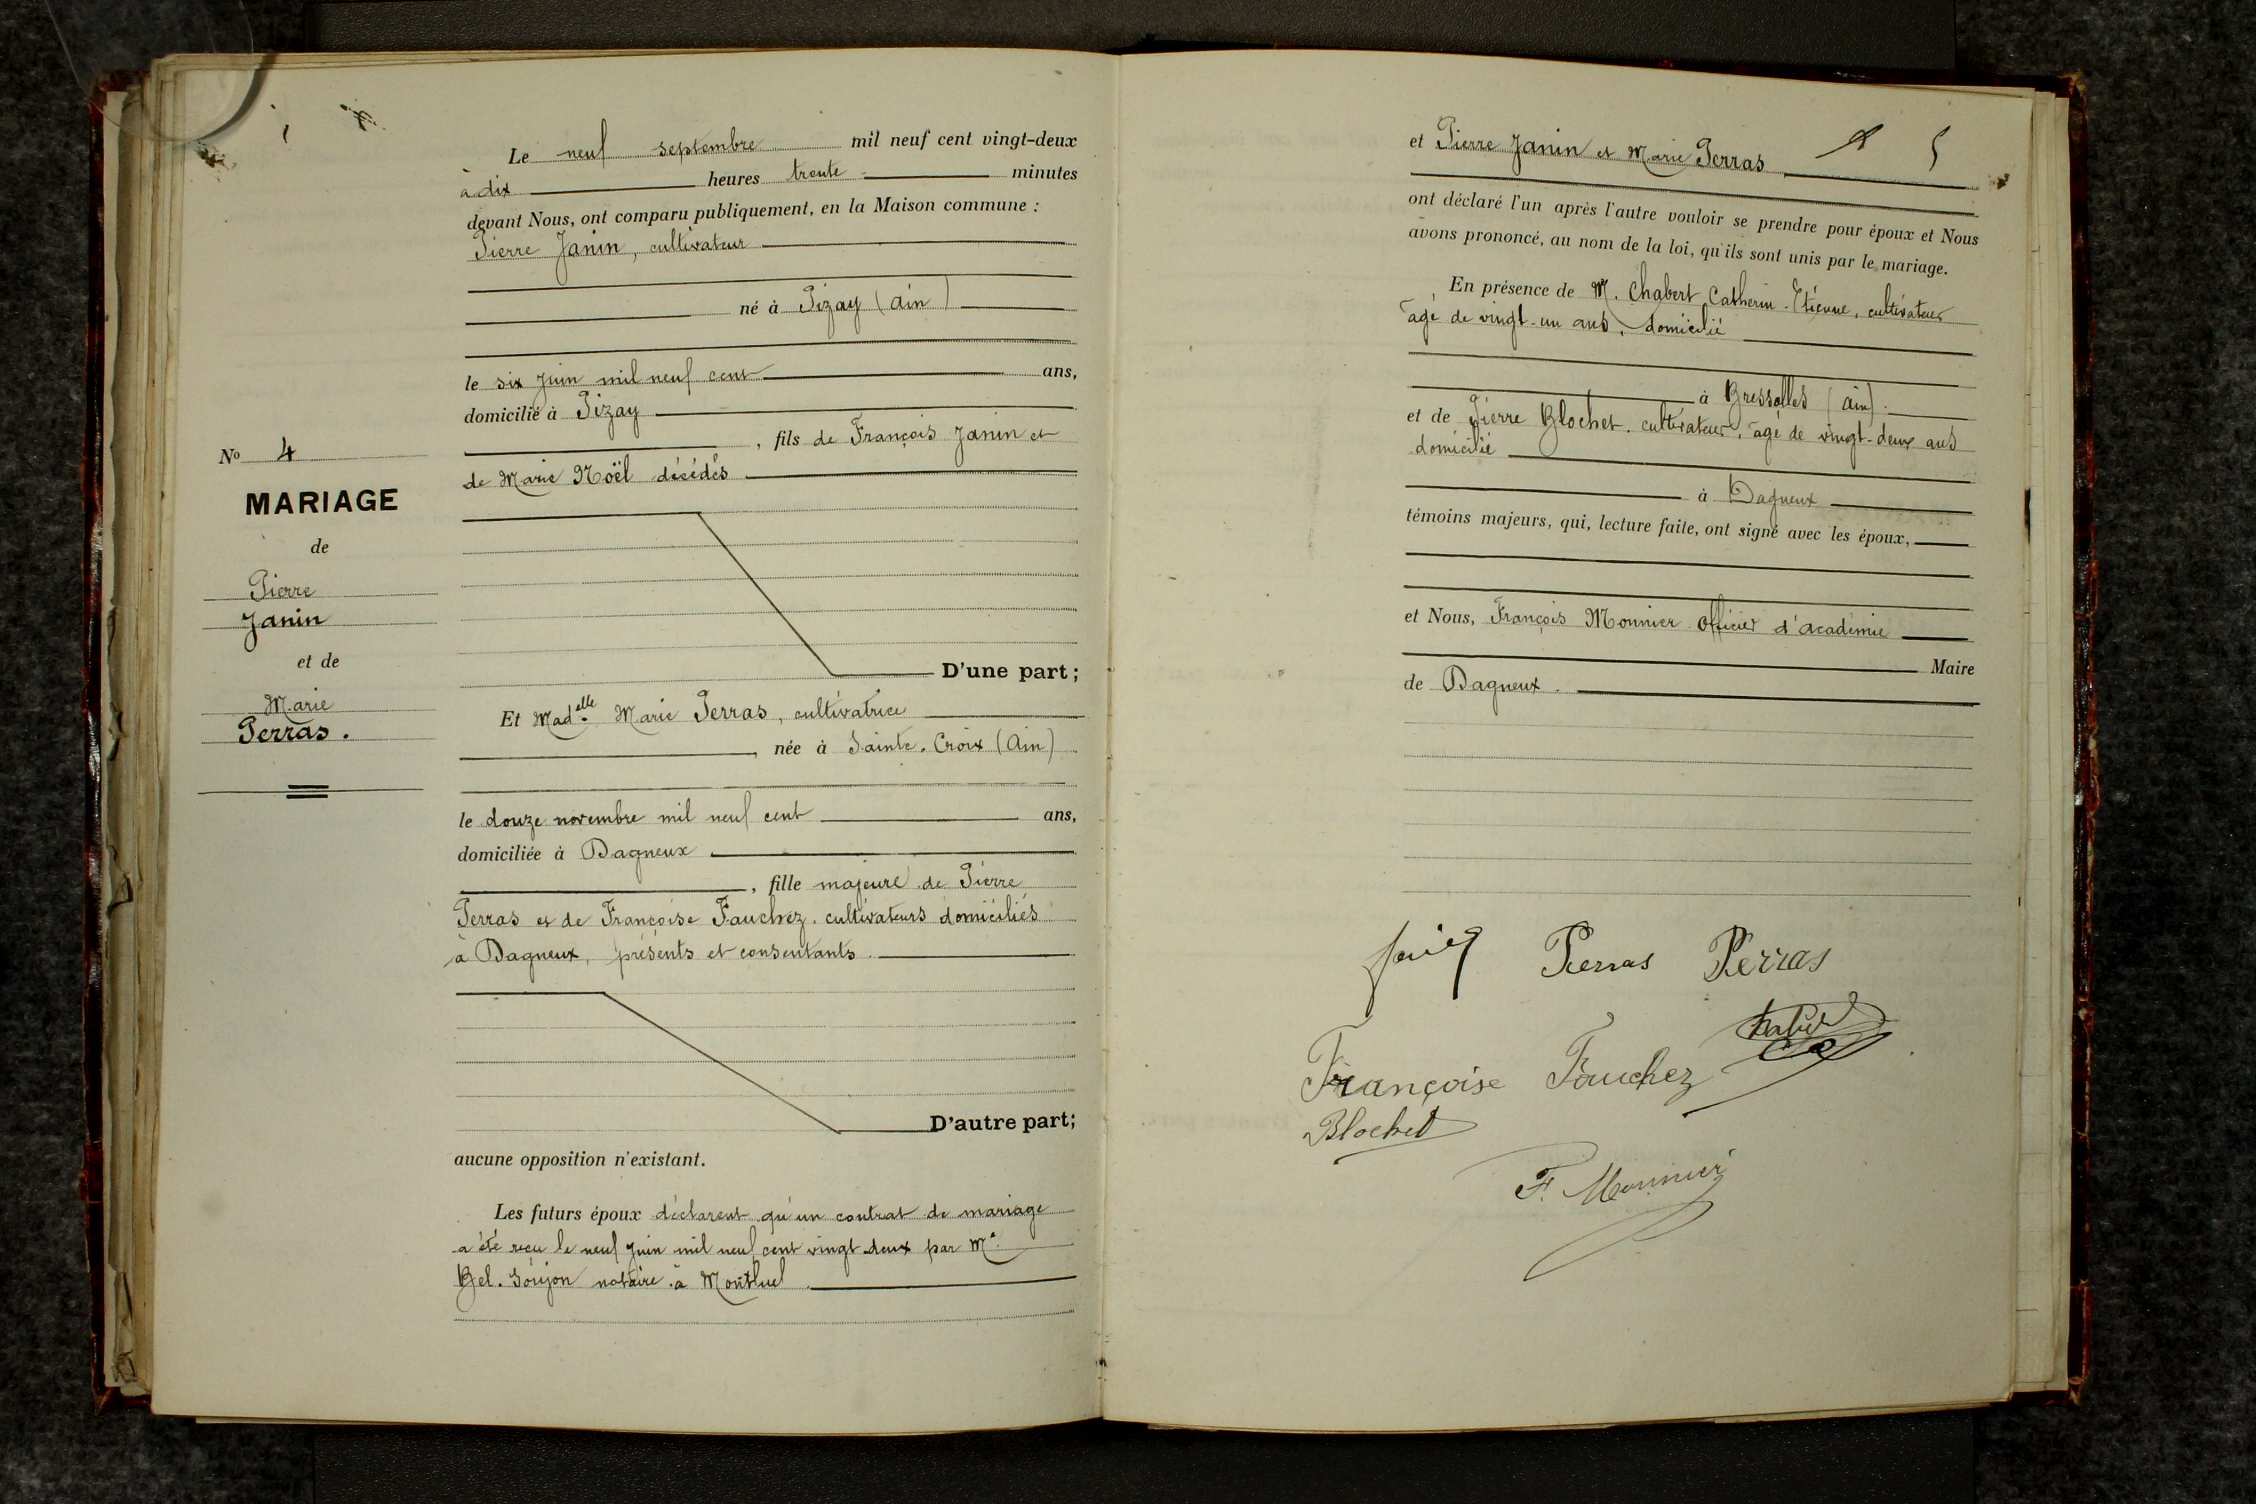 Le neuf septembre mil neuf cent vingt-deux
à dix heures trente minutes
devant Nous, ont comparu publiquement, en la Maison commune :
Pierre Janin, cultivateur
né à Pizay (Ain)
le six Juin mil neuf cent ans,
domicilié à Pizay
, fils de François Janin et
de Marie Noël décédés
D'une part;
Nº 4
MARIAGE
de
Pierre
Janin
et de
Marie
Perras.
Et Madelle Marie Perras, cultivatrice
, née à Sainte-Croix (Ain)
le douze novembre mil neuf cent ans,
domiciliée à Dagneux
, fille majeure de Pierre
Perras et de Françoise Fauchez, cultivateurs domiciliés
à Dagneux, présents et consentants
D'autre part;
aucune opposition n'existant.
Les futurs époux déclarent qu'un contrat de mariage
a été reçu le neuf Juin mil neuf cent vingt deux par Me
Bel-Soujon notaire à Montluel
5
et Pierre Janin et Marie Perras
ont déclaré l'un après l'autre vouloir se prendre pour époux et Nous
avons prononcé, au nom de la loi, qu'ils sont unis par le mariage.
En présence de M. Chabert Catherin-Etienne, cultivateur
âgé de vingt-un ans, domicilié
à Bressolles (Ain)
et de Pierre Blochet, cultivateur, âgé de vingt-deux ans
domicilié
à Dagneux
témoins majeurs, qui, lecture faite, ont signé avec les époux,
et Nous, François Monnier Officier d'académie
Maire
de Dagneux.
Perras Perras
Françoise Fouchez
Blochet
F. Monnier